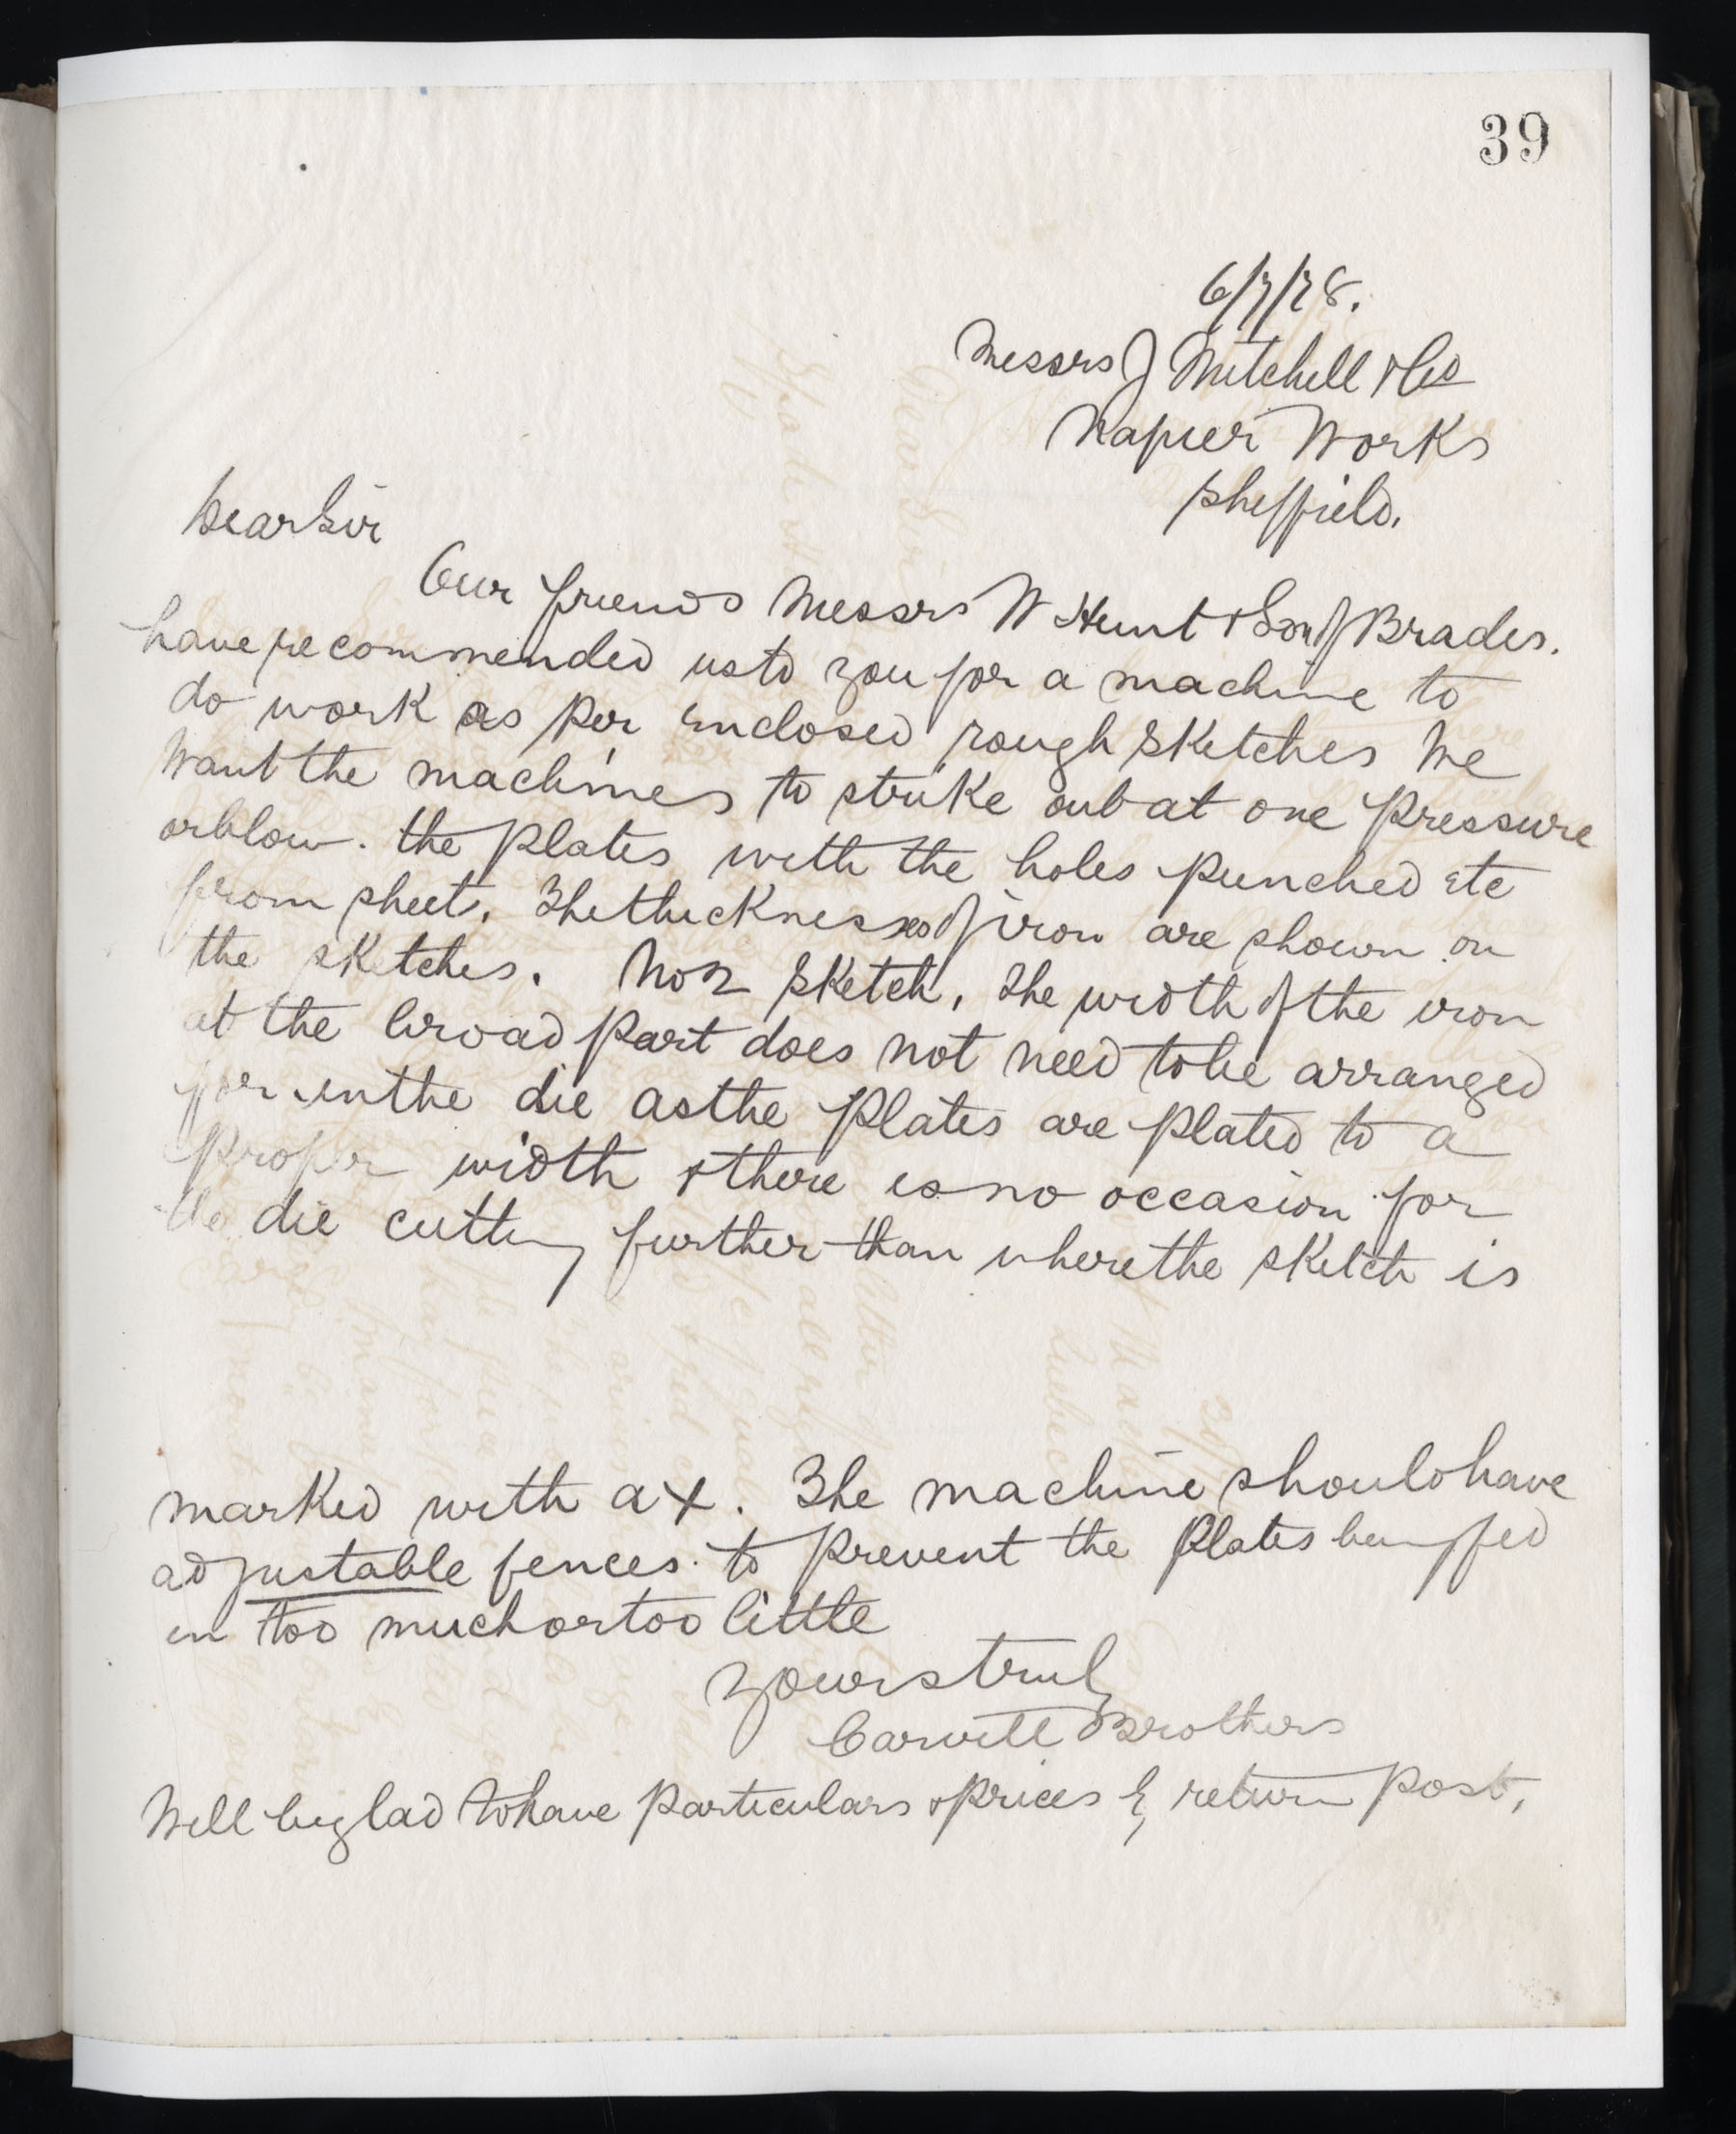 39
6/7/78.
Messrs J Mitchell & Co
Napier Works
Sheffield.
Dear Sir
Our friends Messrs W Hunt & Son of Brades.
have recommended us to you for a machine to
do work as per enclosed rough sketches We
want the machines to strike out at one pressure
or blow. the plates with the holes punched etc
from sheet. The thicknesses of iron are shown on
the sketches. No 2 sketch. The width of the iron
at the broad part does not need to be arranged
for in the die as the plates are plated to a
proper width & there is no occasion for
the die cutting further than where the sketch is
marked with a x. The machine should have
adjustable fences to prevent the plates being fed
in too much or too little
Yours truly
Carvill Brothers
Will be glad to have particulars & prices by return post.